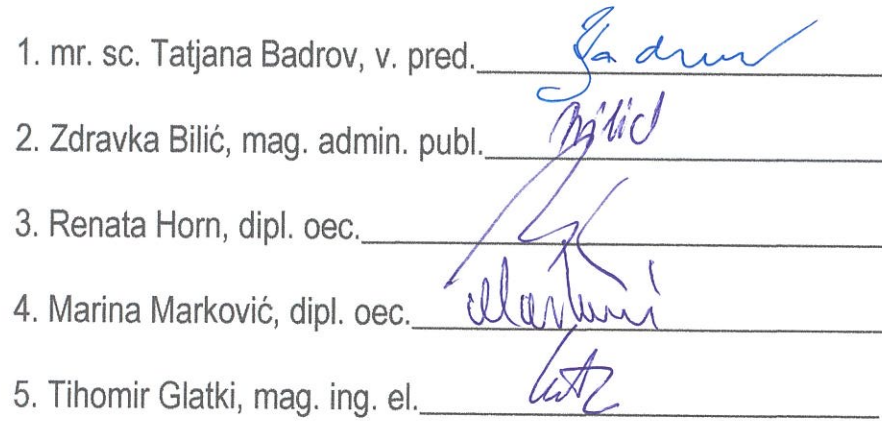 1. mr. sc. Tatjana Badrov, v. pred.
2. Zdravka Bilić, mag. admin. publ. Bilić
3. Renata Horn, dipl. oec.
4. Marina Marković, dipl. oec.
5. Tihomir Glatki, mag. ing. el.